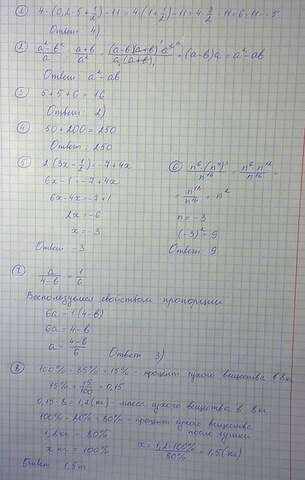 ① 4·(0,2·5+1/2)-11=4·(1+1/2)-11=4·3/2-11=6-11=-5
Ответ 4)
② (a²-b²)/a : (a+b)/a² = (a-b)(a+b)·a²/a(a+b) = (a-b)a=a²-ab
Ответ a²-ab
③ 5+5+6=16
Ответ 2)
④ 50+200=250
Ответ: 250
⑤ 2(3x-1/2)=-7+4x
6x-1=-7+4x
6x-4x=-7+1
2x=-6
x=-3
Ответ -3
⑥
n=-3
(-3)²=9
Ответ 9
⑦ a/(4-b)=1/6
Воспользуемся свойством пропорции
6a=1(4-b)
6a=4-b
a=(4-b)/6
Ответ 3)
⑧ 100%-85%=15% - процент сухого вещества в 8 кг
15%=15/100=0,15
0,15·8=1,2(кг) - масса сухого вещества в 8 кг
100%-20%=80% - процент сухого вещества
после сушки
1,2 кг - 80%
x кг - 100%
x=1,2·100%/80%=1,5(кг)
Ответ 1,5